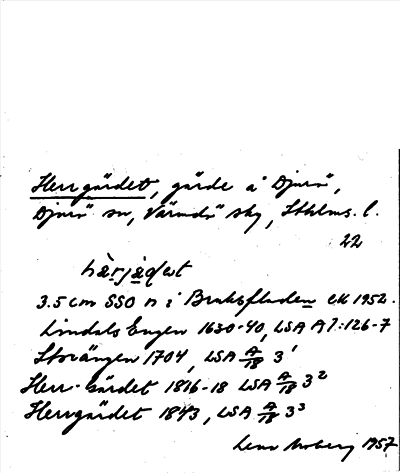 Herrgärdet, gärde å Djurö,
Djurö sn, Värmdö sky, Sthlms. l.
22
hàrjàḍet
3.5 cm SSO n i Braksfladen EK 1952.
Lindals Engen 1630-40, LSA A 7:126-7
Storängen 1704, LSA A/18 3¹
Herr-Gärdet 1816-18 LSA A/18 3²
Herrgärdet 1843, LSA A/18 3³
Lena Moberg 1957